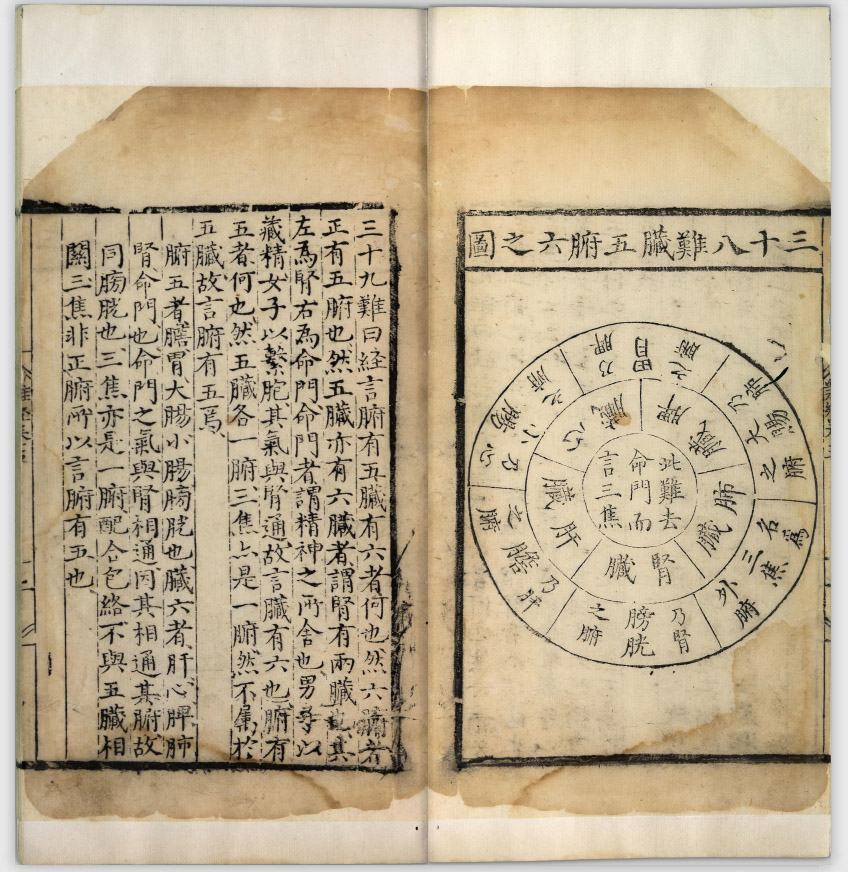 三十八難臟五腑六之圖
此難去
命門而
言三焦
心臟
脾臟
肺臟
腎臟
肝臟
乃脾
胃
之腑
乃肺
大腸
之腑
名為
三焦
外腑
乃腎
膀胱
之腑
乃肝
膽
之腑
乃心
小腸
之腑
三十九難曰経言腑有五臟有六者何也然六腑者
正有五腑也然五臟亦有六臟者謂腎有兩臟也其
左為腎右為命門命門者謂精神之所舍也男子以
藏精女子以繫胞其氣與腎通故言臟有六也腑有
五者何也然五臟各一腑三焦亦是一腑然不屬於
五臟故言腑有五焉
腑五者膽胃大腸小腸膀胱也臟六者肝心脾肺
腎命門也命門之氣與腎相通因其相通其腑故
同膀胱也三焦亦是一腑配合包絡不與五臟相
關三焦非正腑所以言腑有五也